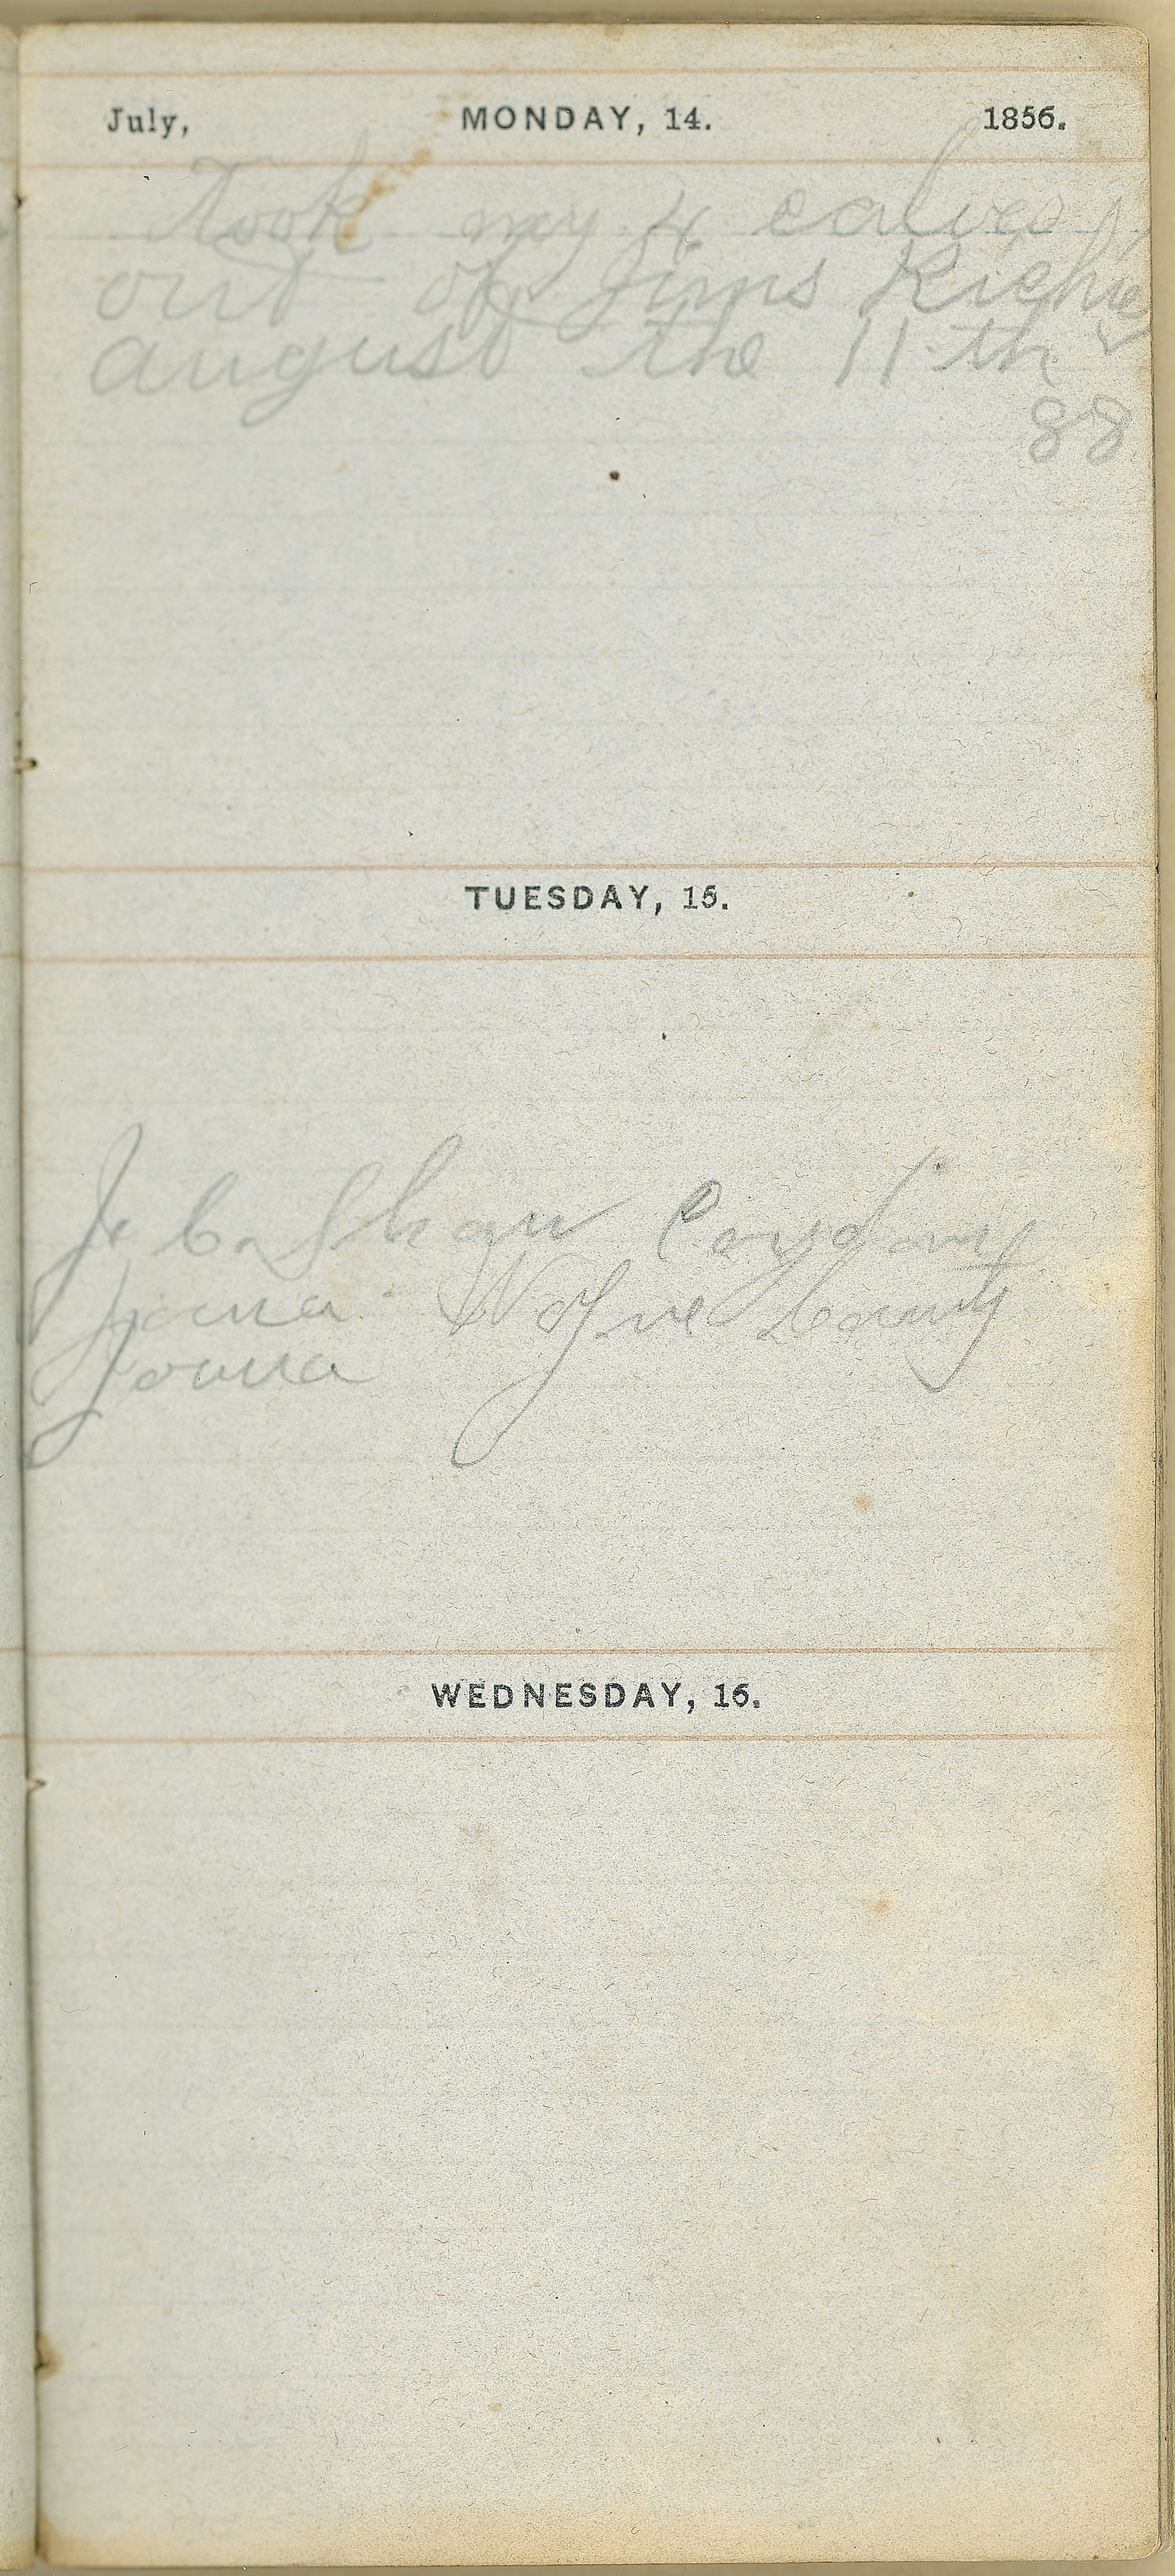 July, MONDAY, 14. 1856.
Took my 4 calves
out of Jims Richie
august the 11 th
88
TUESDAY, 15.
J. C. Shaw
Iowa Wayne County
Iowa
WEDNESDAY, 16.